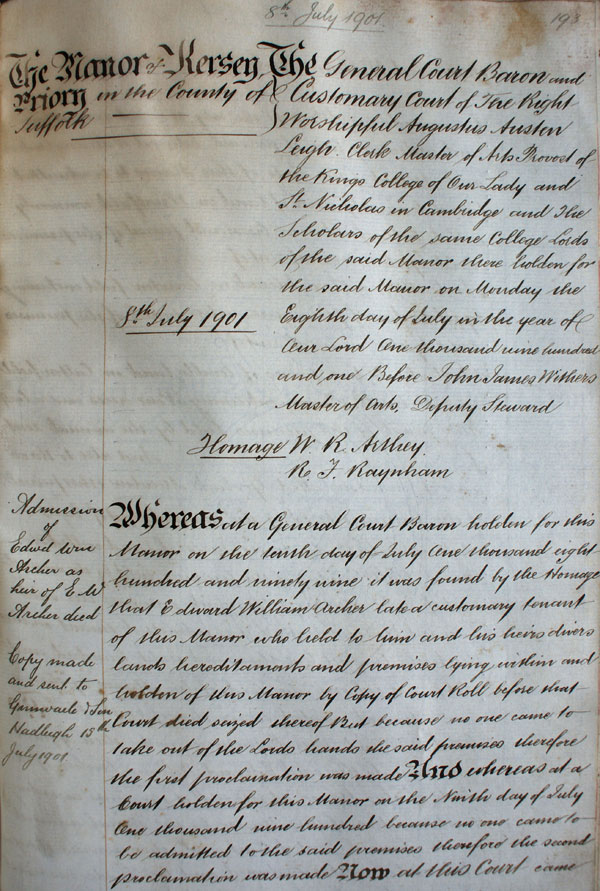 8th July 1901
193
The Manor of Kersey
Priory in the County of
Suffolk
The General Court Baron and
Customary Court of The Right
Worshipful Augustus Austen
Leigh. Clerk Master of Arts Provost of
the Kings College of Our Lady and
St. Nicholas in Cambridge and The
Scholars of the same College Lords
of the said Manor there holden for
the said Manor on Monday the
Eighth day of July in the year of
Our Lord One thousand nine hundred
and one Before John James Withers
Master of Arts. Deputy Steward
8th July 1901
Homage W. R. Arthey.
R. F. Raynham
Admission
of
Edwd Wm
Archer as
heir of E W
Archer died
Copy made
and sent to
Grimwade & Son
Hadleigh 15th
July 1901
Whereas at a General Court Baron holden for this
Manor on the tenth day of July One thousand eight
hundred and ninety nine it was found by the Homage
that Edward William Archer late a customary tenant
of this Manor who held to him and his heirs divers
lands hereditaments and premises lying within and
holden of this Manor by Copy of Court Roll before that
Court died seized thereof But because no one came to
take out of the Lords hands the said premises therefore
the first proclamation was made And whereas at a
Court holden for this Manor on the Ninth day of July
One thousand nine hundred because no one came to
be admitted to the said premises therefore the second
proclamation was made Now at this Court came